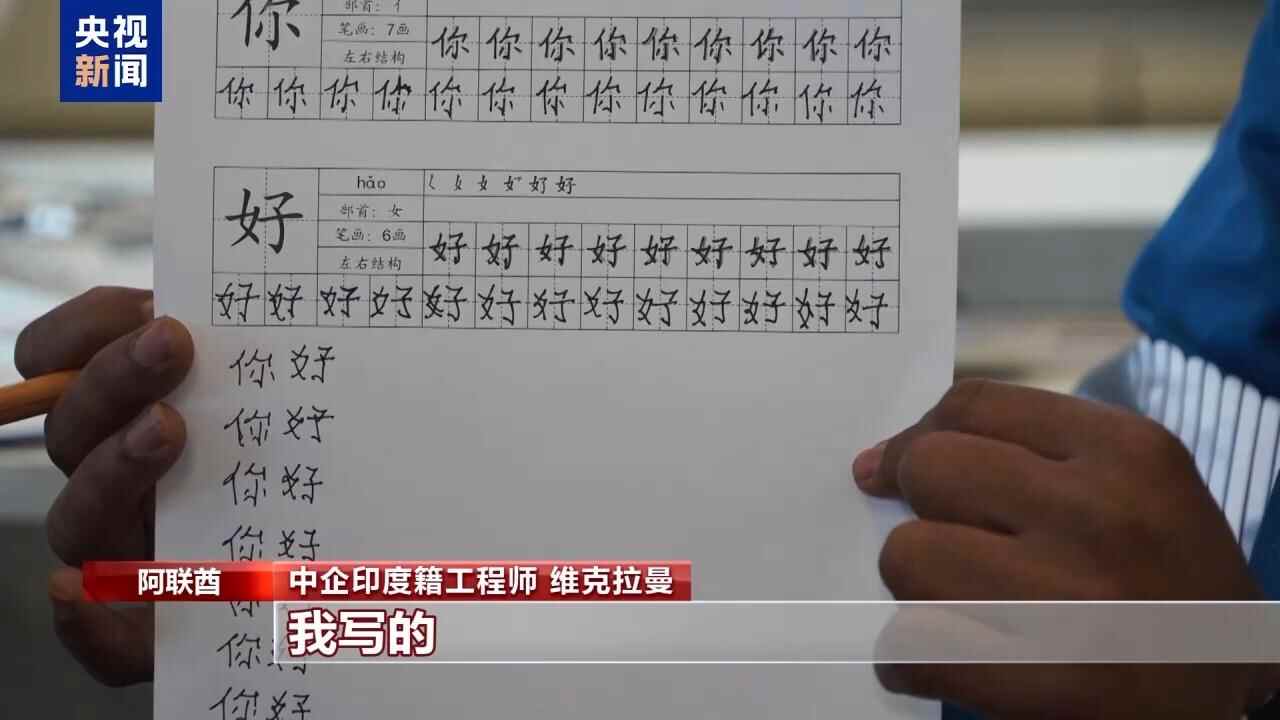 央视
新闻
你
部首：亻
笔画：7画
左右结构
你 你 你 你 你 你 你 你 你
你 你 你 你 你 你 你 你 你 你 你 你 你
好
hǎo
部首：女
笔画：6画
左右结构
好 好 好 好 好 好 好 好 好
好 好 好 好 好 好 好 好 好 好 好 好 好
你 好
你 好
你 好
你 好
你
你 好
你 好
阿联酋
中企印度籍工程师 维克拉曼
我写的